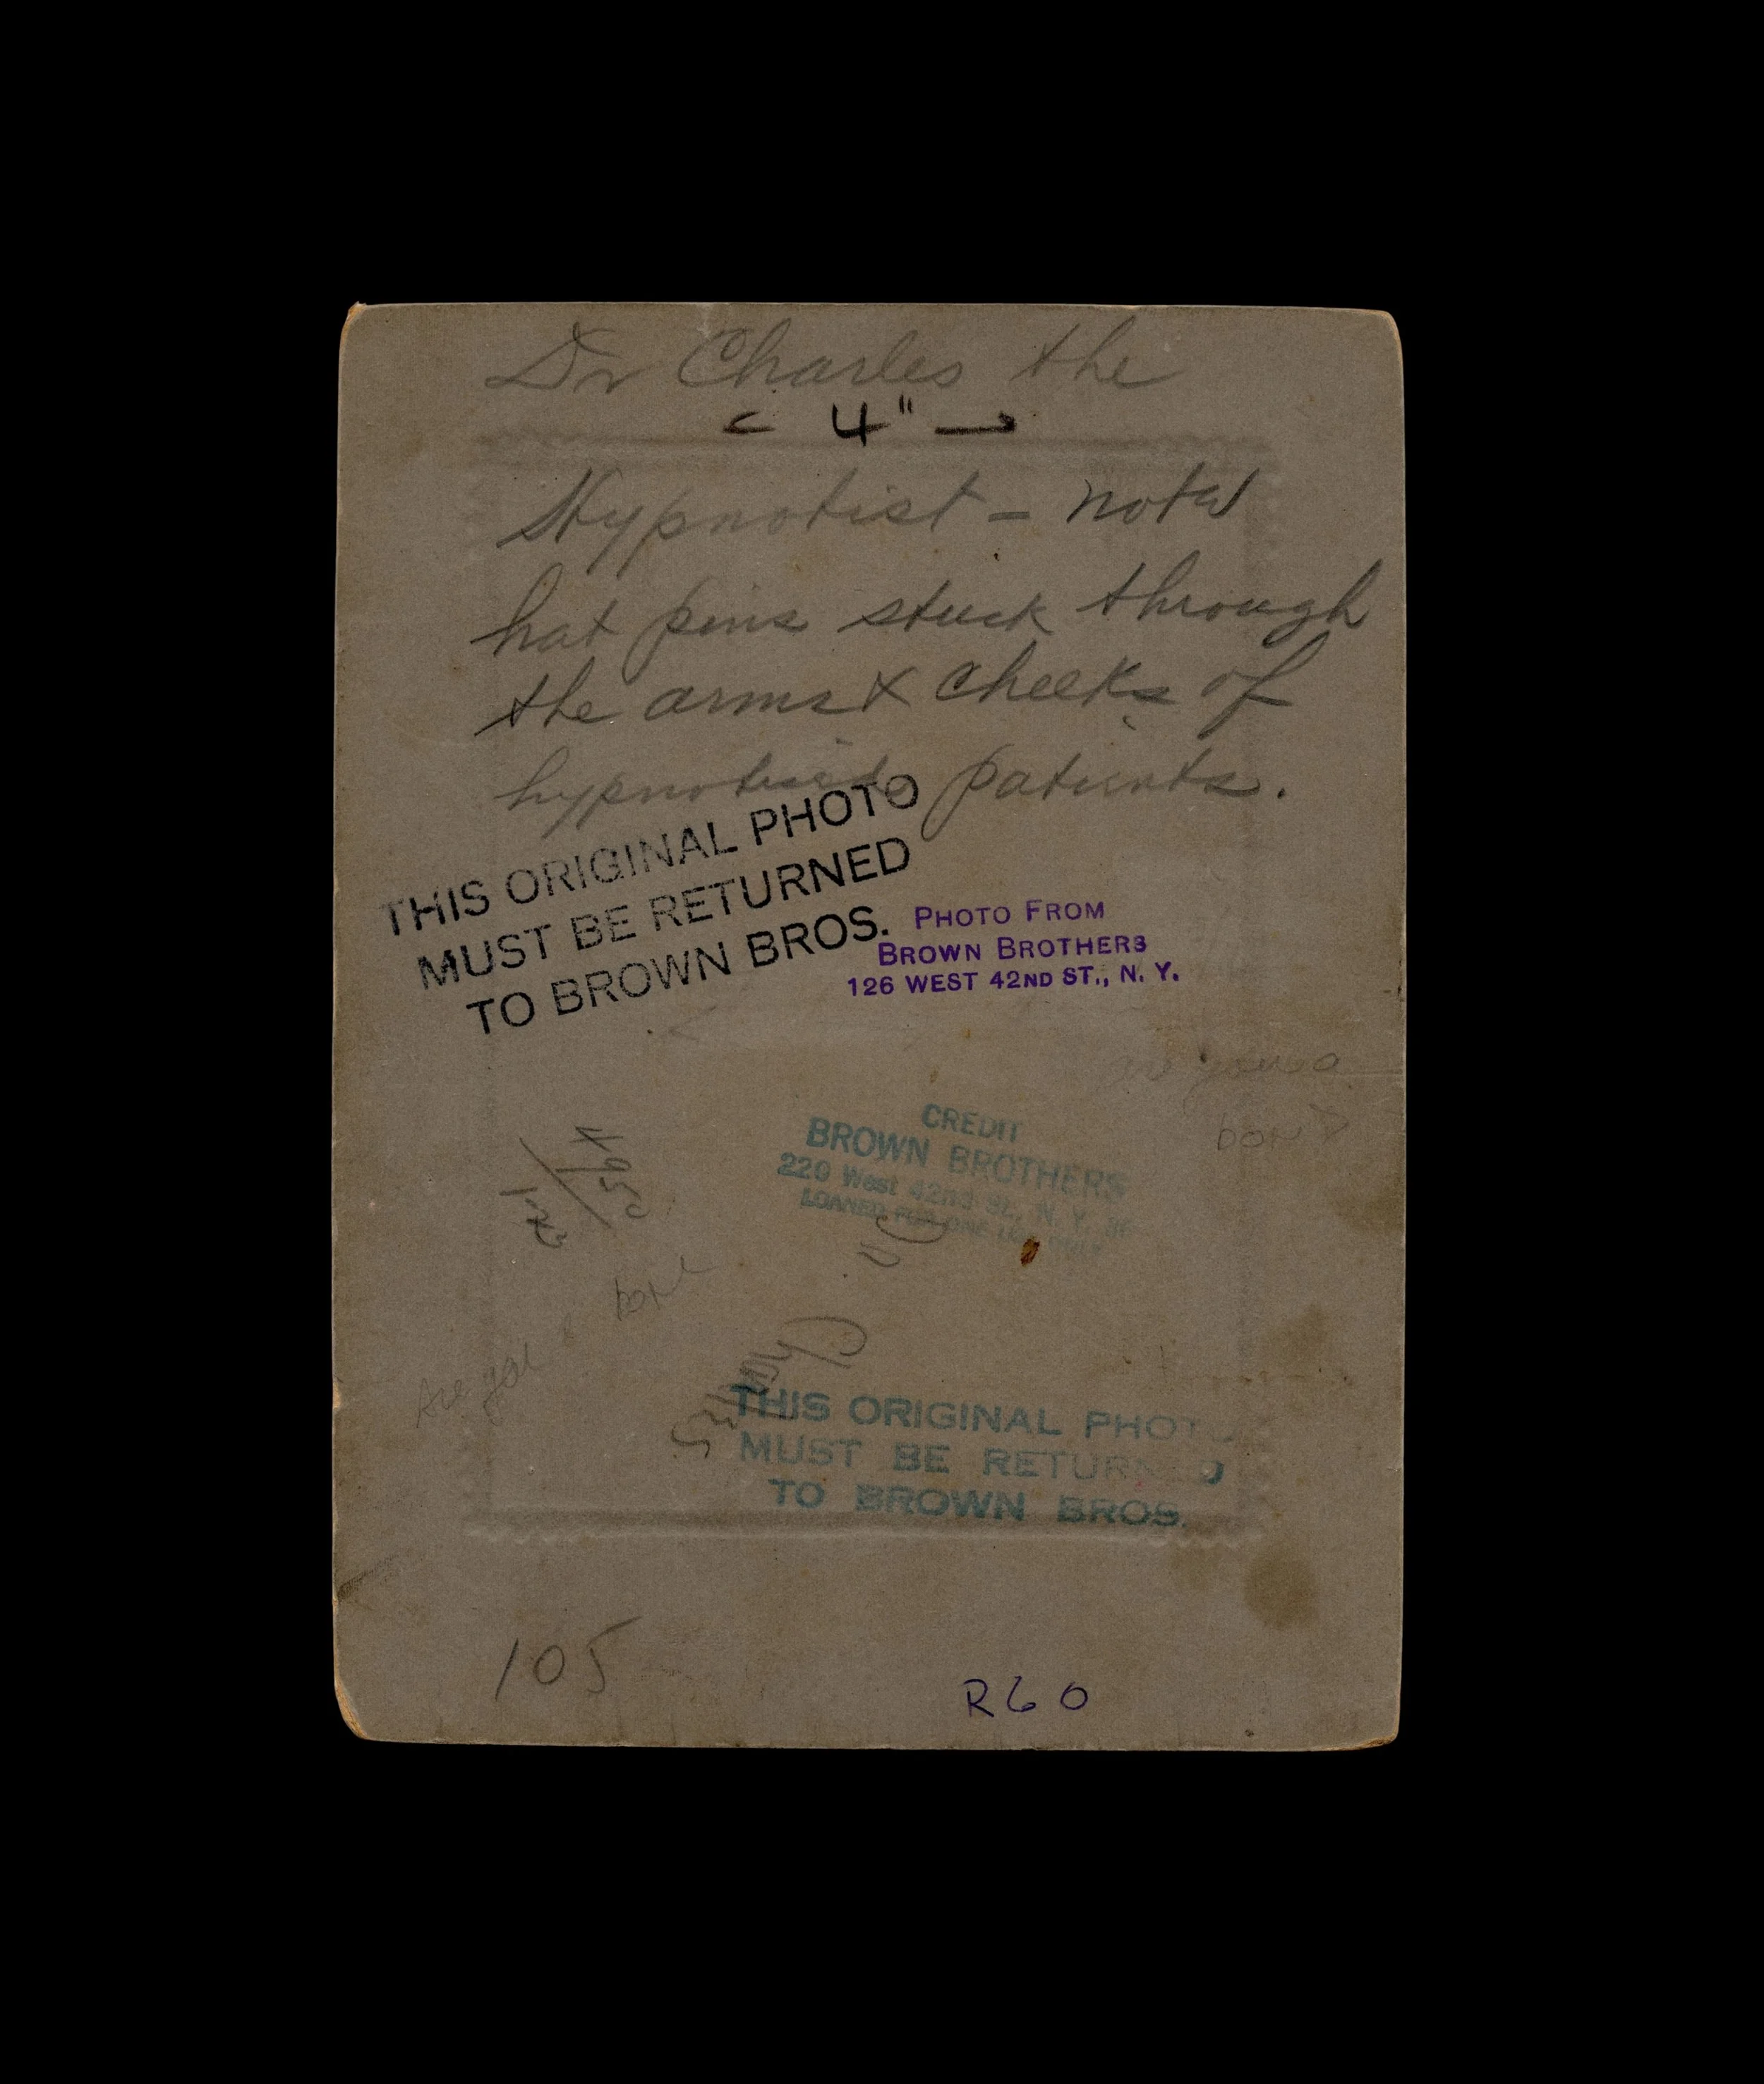 Dr Charles the
4"
Hypnotist - note
hat pins stuck through
the arms & cheeks of
hypnotised patients.
THIS ORIGINAL PHOTO
MUST BE RETURNED
TO BROWN BROS.
PHOTO FROM
BROWN BROTHERS
126 WEST 42ND ST., N. Y.
are you a
CREDIT
BROWN BROTHERS
220 West 42nd St., N. Y. 36
LOANED FOR ONE USE ONLY
Are you a
Dr
Charles
THIS ORIGINAL PHOTO
MUST BE RETURNED
TO BROWN BROS.
105
R60